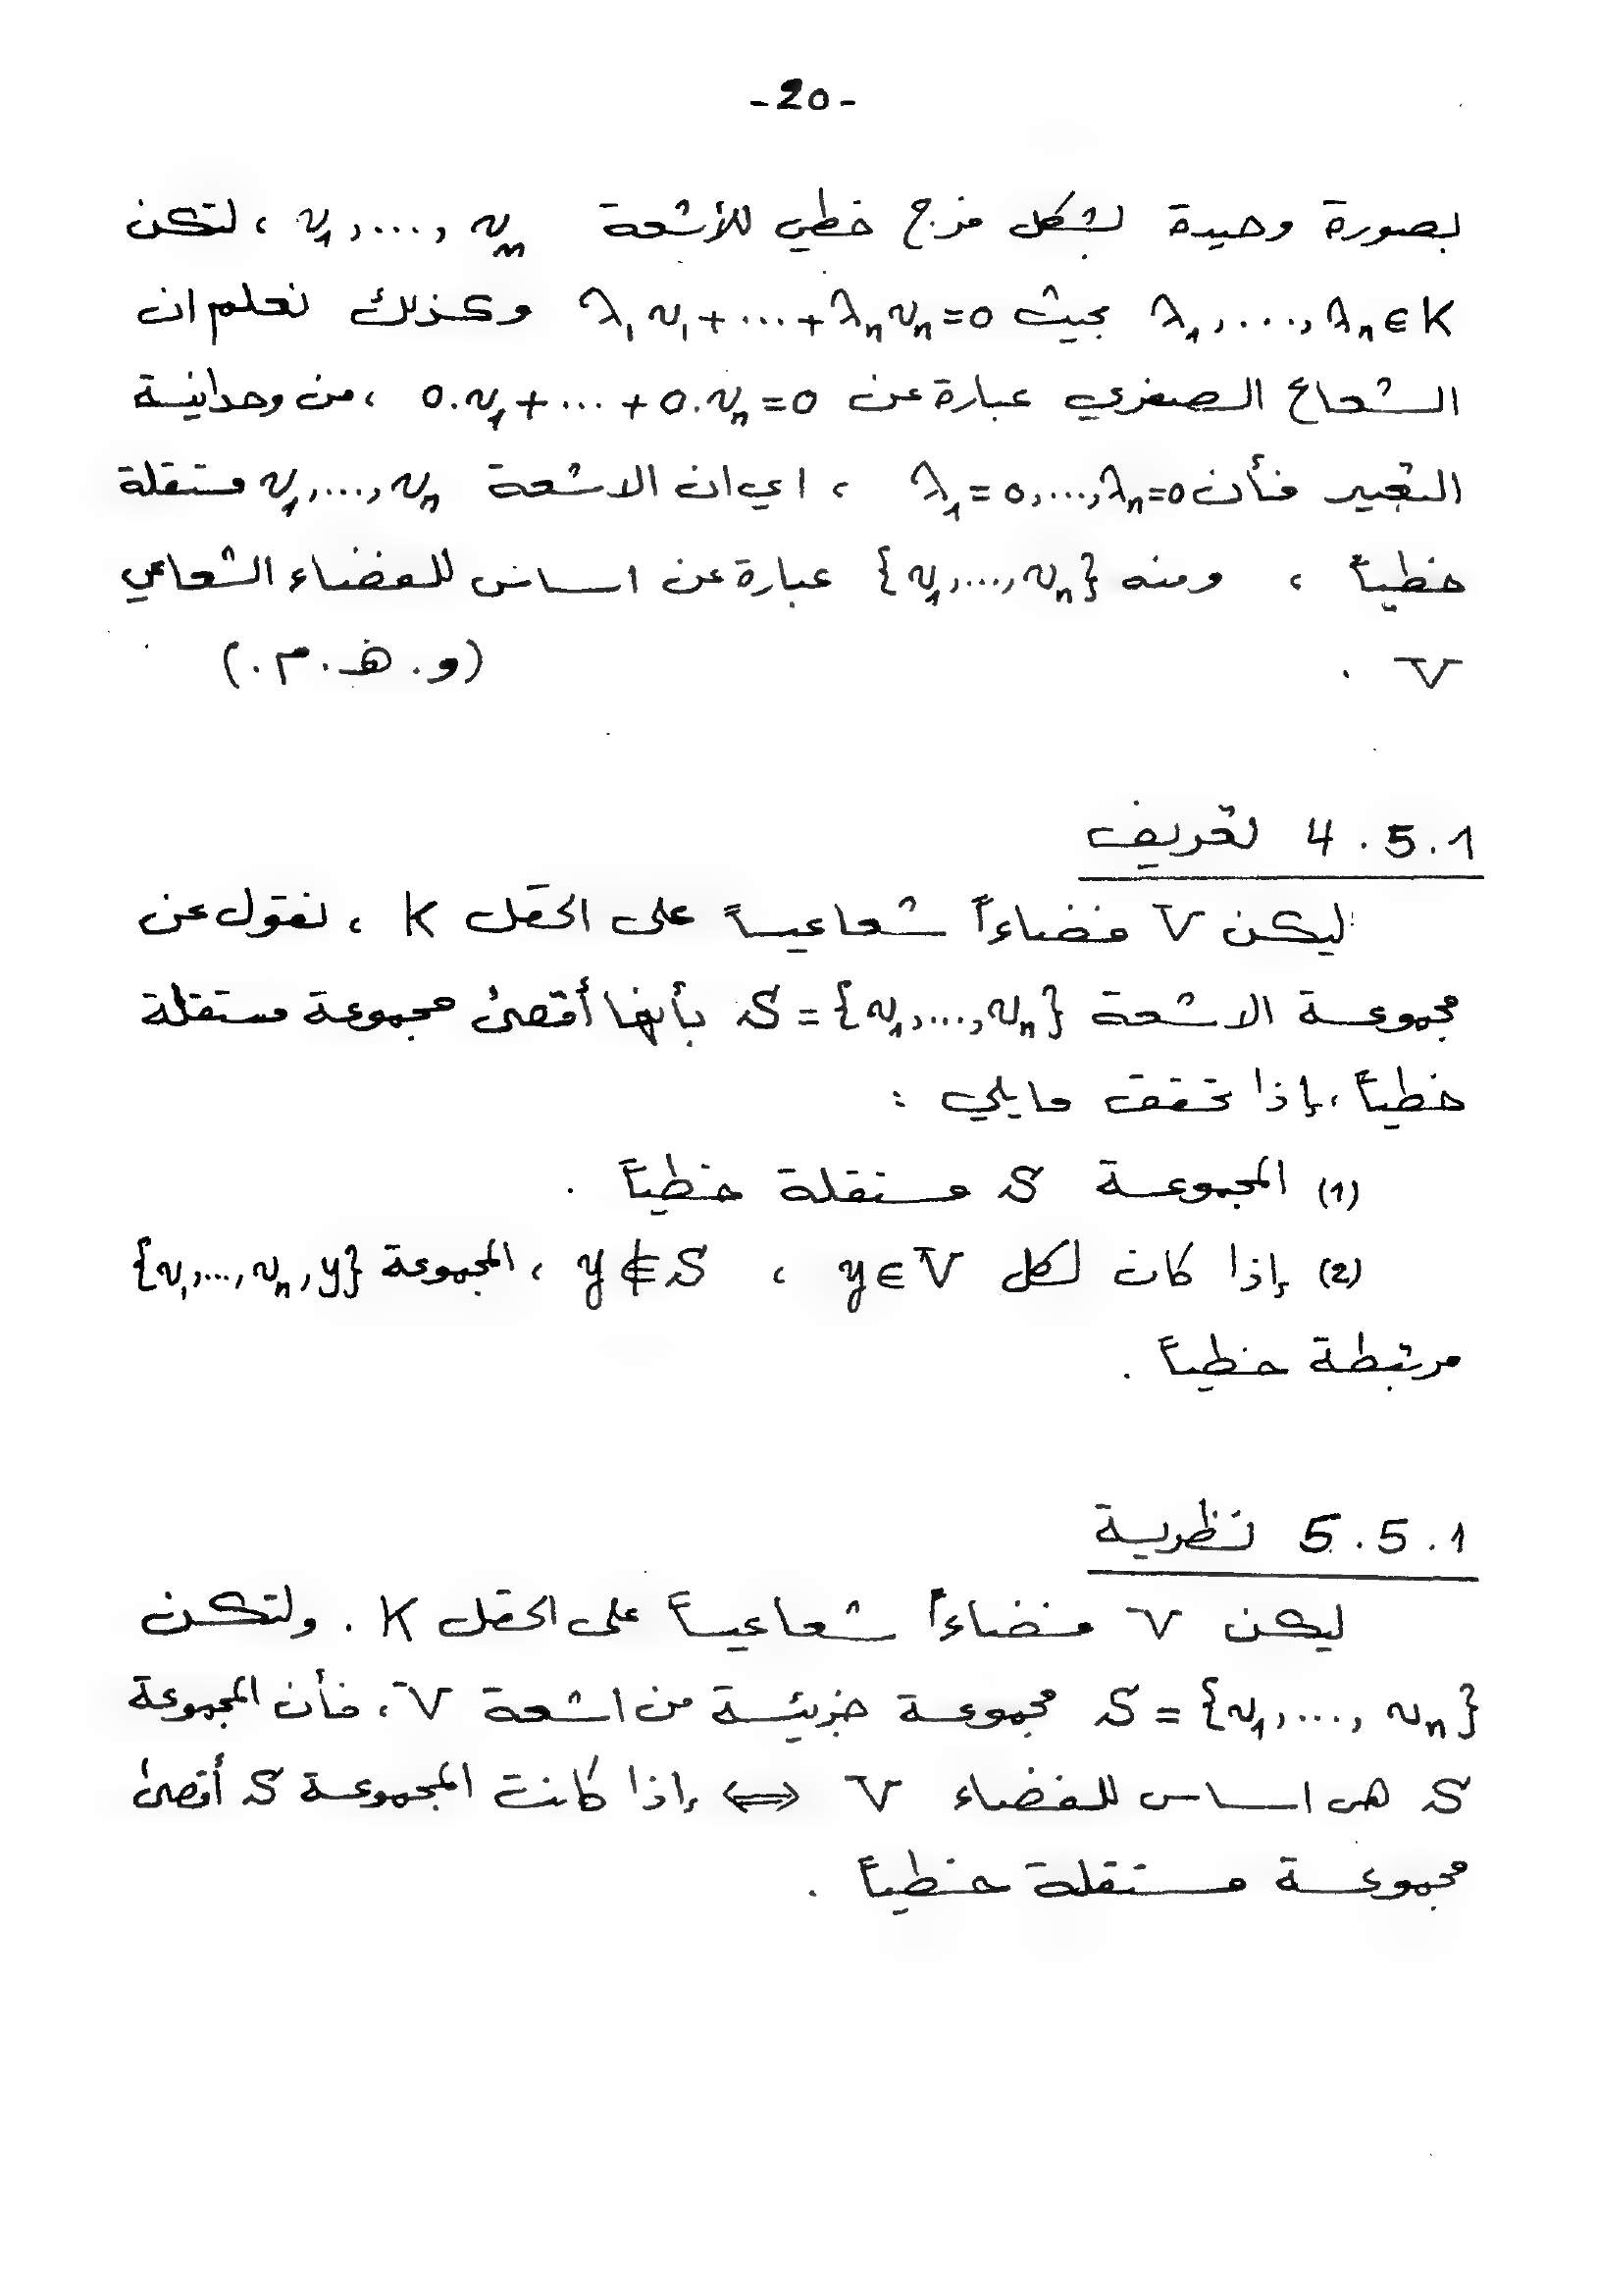 -20-
بصورة وحيدة لشكل مزج خطي للأشعة v₁,...,vₙ ، لتكن
λ₁,...,λₙ∈K بحيث λ₁v₁+...+λₙvₙ=0 وكذلك نعلم ان
الشعاع الصفري عبارة عن 0.v₁+...+0.vₙ=0 ، من وحدانية
التعبير فأن λ₁=0,...,λₙ=0 ، اي ان الاشعة v₁,...,vₙ مستقلة
خطياً ، ومنه {v₁,...,vₙ} عبارة عن اساس للفضاء الشعاعي
V . (و.هـ.م.)
4.5.1 تعريف
ليكن V فضاءاً شعاعياً على الحقل K ، نقول عن
مجموعة الاشعة S={v₁,...,vₙ} بأنها أقصى مجموعة مستقلة
خطياً ، إذا تحقق مايلي :
(1) المجموعة S مستقلة خطياً .
(2) إذا كان لكل y∈V ، y∉S ، المجموعة {v₁,...,vₙ,y}
مرتبطة خطياً .
5.5.1 نظرية
ليكن V فضاءاً شعاعياً على الحقل K . ولتكن
S={v₁,...,vₙ} مجموعة جزئية من اشعة V ، فأن المجموعة
S هي اساس للفضاء V ⇔ إذا كانت المجموعة S أقصى
مجموعة مستقلة خطياً .